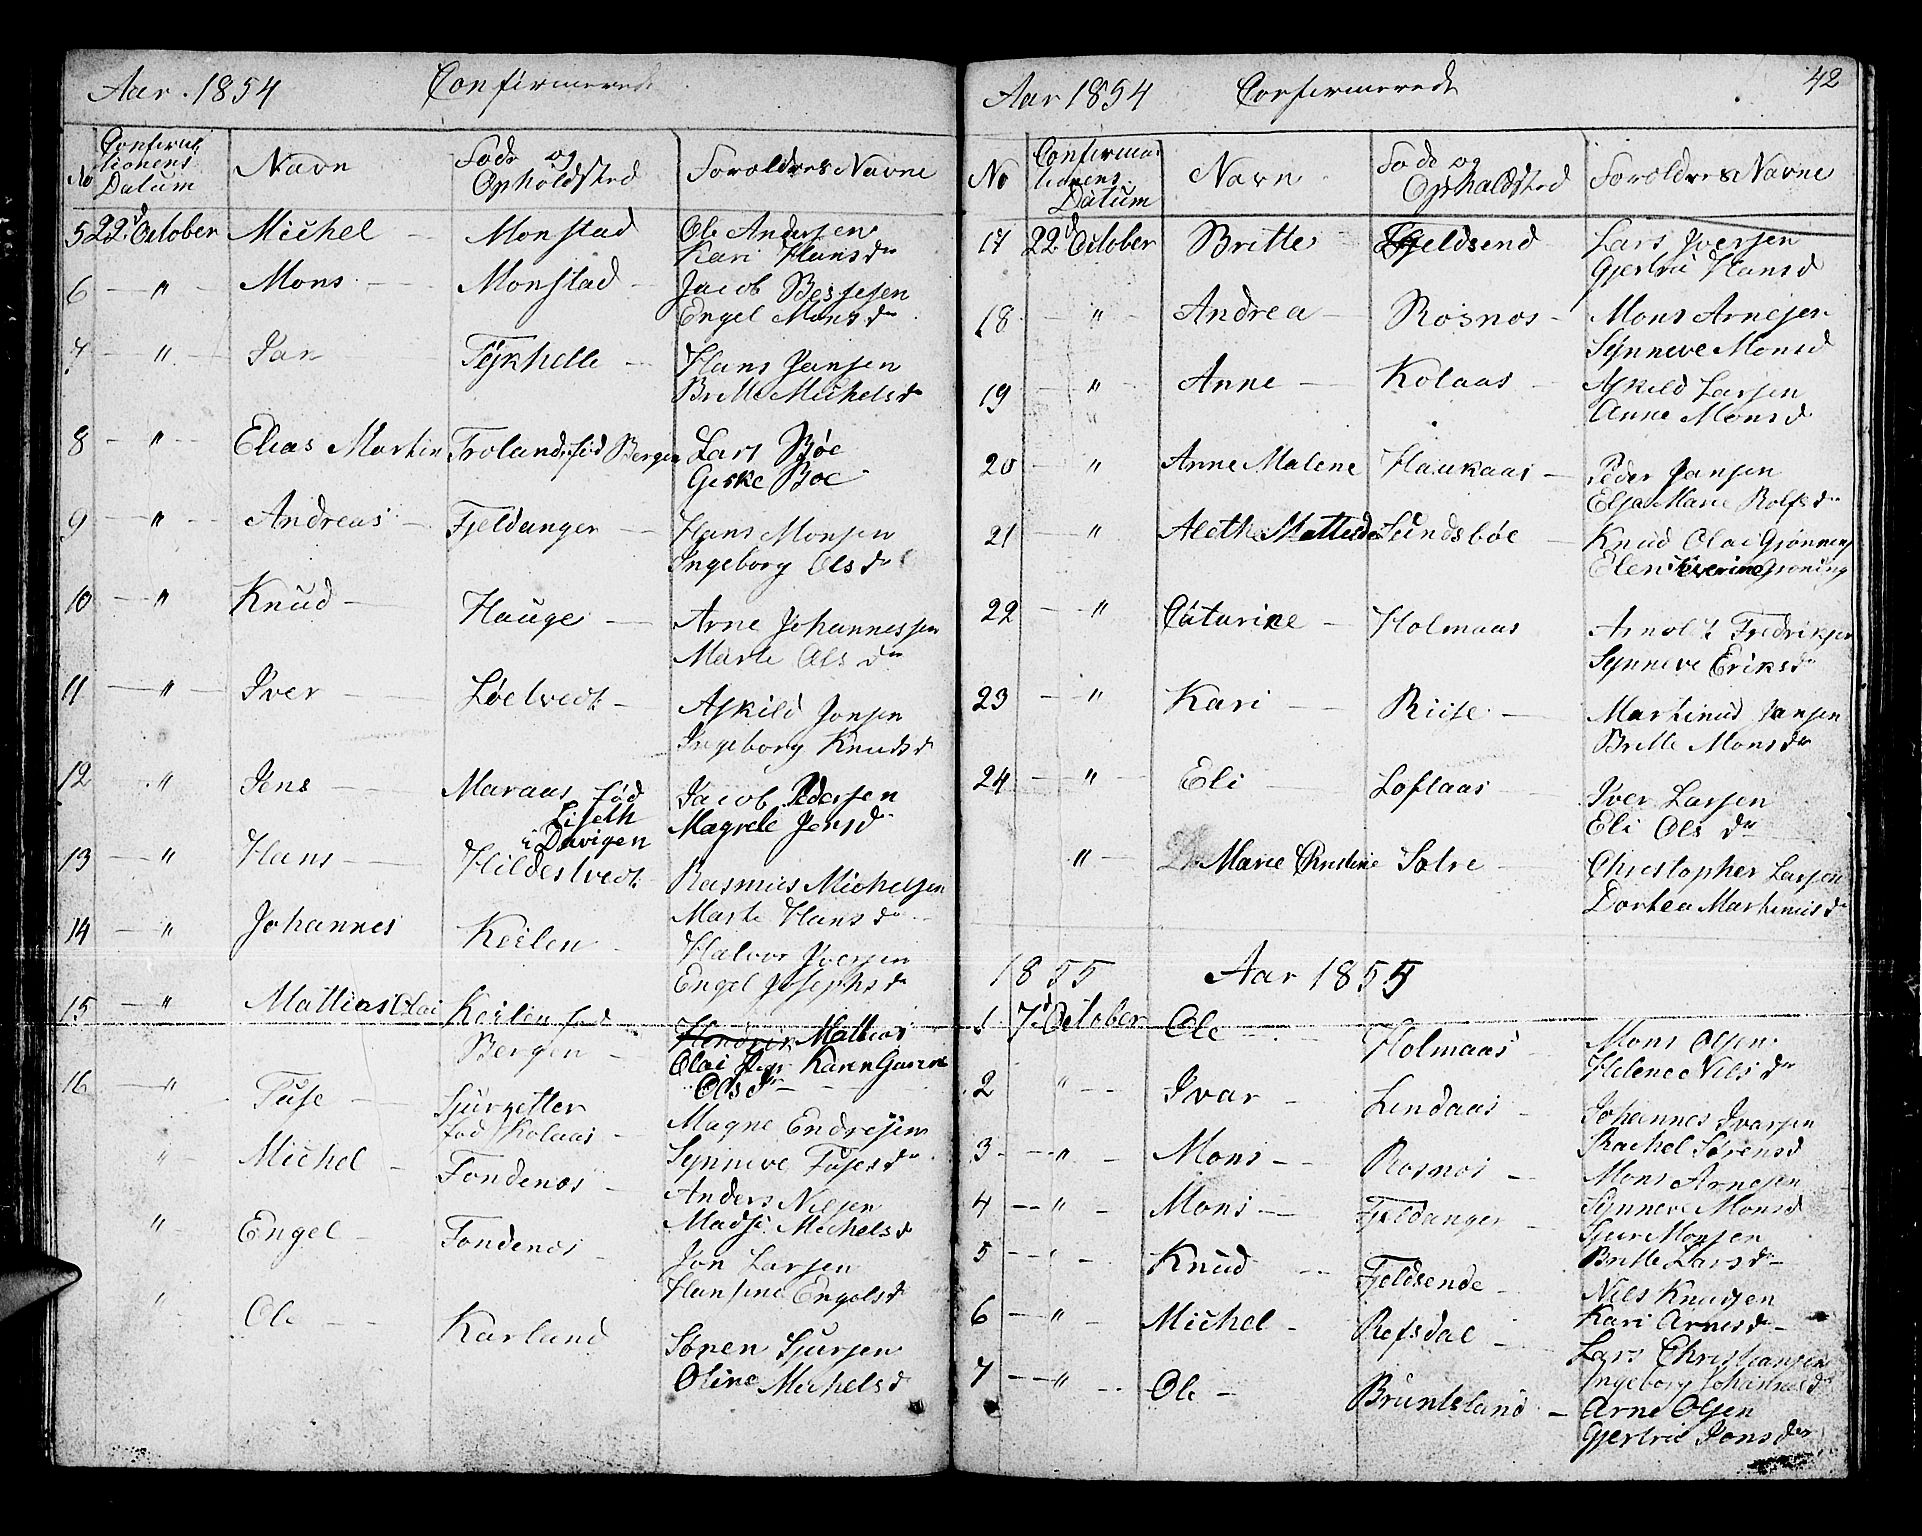 Aar. 1854 Confirmerede
No Confirmationens Datum Navn Føde og Opholdsted Forældres Navne
5 22d October Michel Monstad Ole Andersen
Kari Hansdr
6 " Mons Monstad Jacob Bessesen
Engel Monsdr
7 " Jan Hans Jansen
Britte Michelsdr
8 " Elias Martin Troland fød Bergen Lars Bøe
Geske Boe
9 " Andreas Fjeldanger Hans Monsen
Ingeborg Olsdr
10 " Knud Hauge Arne Johannessen
Marte Olsdr
11 " Iver Løetvedt Askild Jonsen
Ingeborg Knudsdr
12 " Jens Maraas fød Jacob Pedersen
Liseth Magrete Jensdr
i Davigen
13 " Hans Hildestvedt Rasmus Michelsen
Marte Hansdr
14 " Johannes Keilen Halvor Iversen
Engel Josephsdr
15 " Mattias Olai Keilen fød Hendrik Mattias
Bergen Olai Karen
Olsdr
16 " Tufe Sjursetter Magne Endresen
fød Kolaas Synneve Tufesdr
" Michel Tondenos Anders Nilsen
Madsi Michelsd
" Engel Tondenos Jon Larsen
Hansine Engelsd
" Ole Karland Sønen Sjursen
Oline Michelsd
42
Aar 1854 Confirmerede
No Confirmationens Datum Navn Fode og Ophaldsted Foroldres Navne
17 22d October Britte Fjeldsend Lars Iversen
Gjertrü Hansd
18 " Andrea Rosnos Mons Arnesen
Synneve Monsd
19 " Anne Kolaas Askild Larsen
Anne Monsd
20 " Anne Malene Haukaas Peder Jansen
Elsa Marie Rolfsdr
21 " Alethe Mattesdr Sundsbøe Knud Olai Grønning
Elen Severine Groning
22 " Caturine Holmaas Arnold Fredriksen
Synneve Eriksdr
23 " Kari Riise Martinus Jansen
Britte Monsdr
24 " Eli Loftaas Iver Larsen
Eli Olsdr
" Marie Christine Solre Christopher Larsen
Dortea Martinusdr
1855 Aar 1855
1 7d October Ole Holmaas Mons Olsen
Helene Nilsdr
2 " Ivar Lendaas Johannes Ivarsen
Rachel Sørensd
3 " Mons Rosnos Mons Arnesen
Synneve Monsd
4 " Mons Fjeldanger Sjur Monsen
Britte Larsdr
5 " Knud Fjeldsende Nils Knudsen
Kari Arnesdr
6 " Michel Refsdal Lars Christiansen
Ingeborg Johannesd
7 " Ole Bruntsland Arne Olsen
Gjertrü Jonsdr